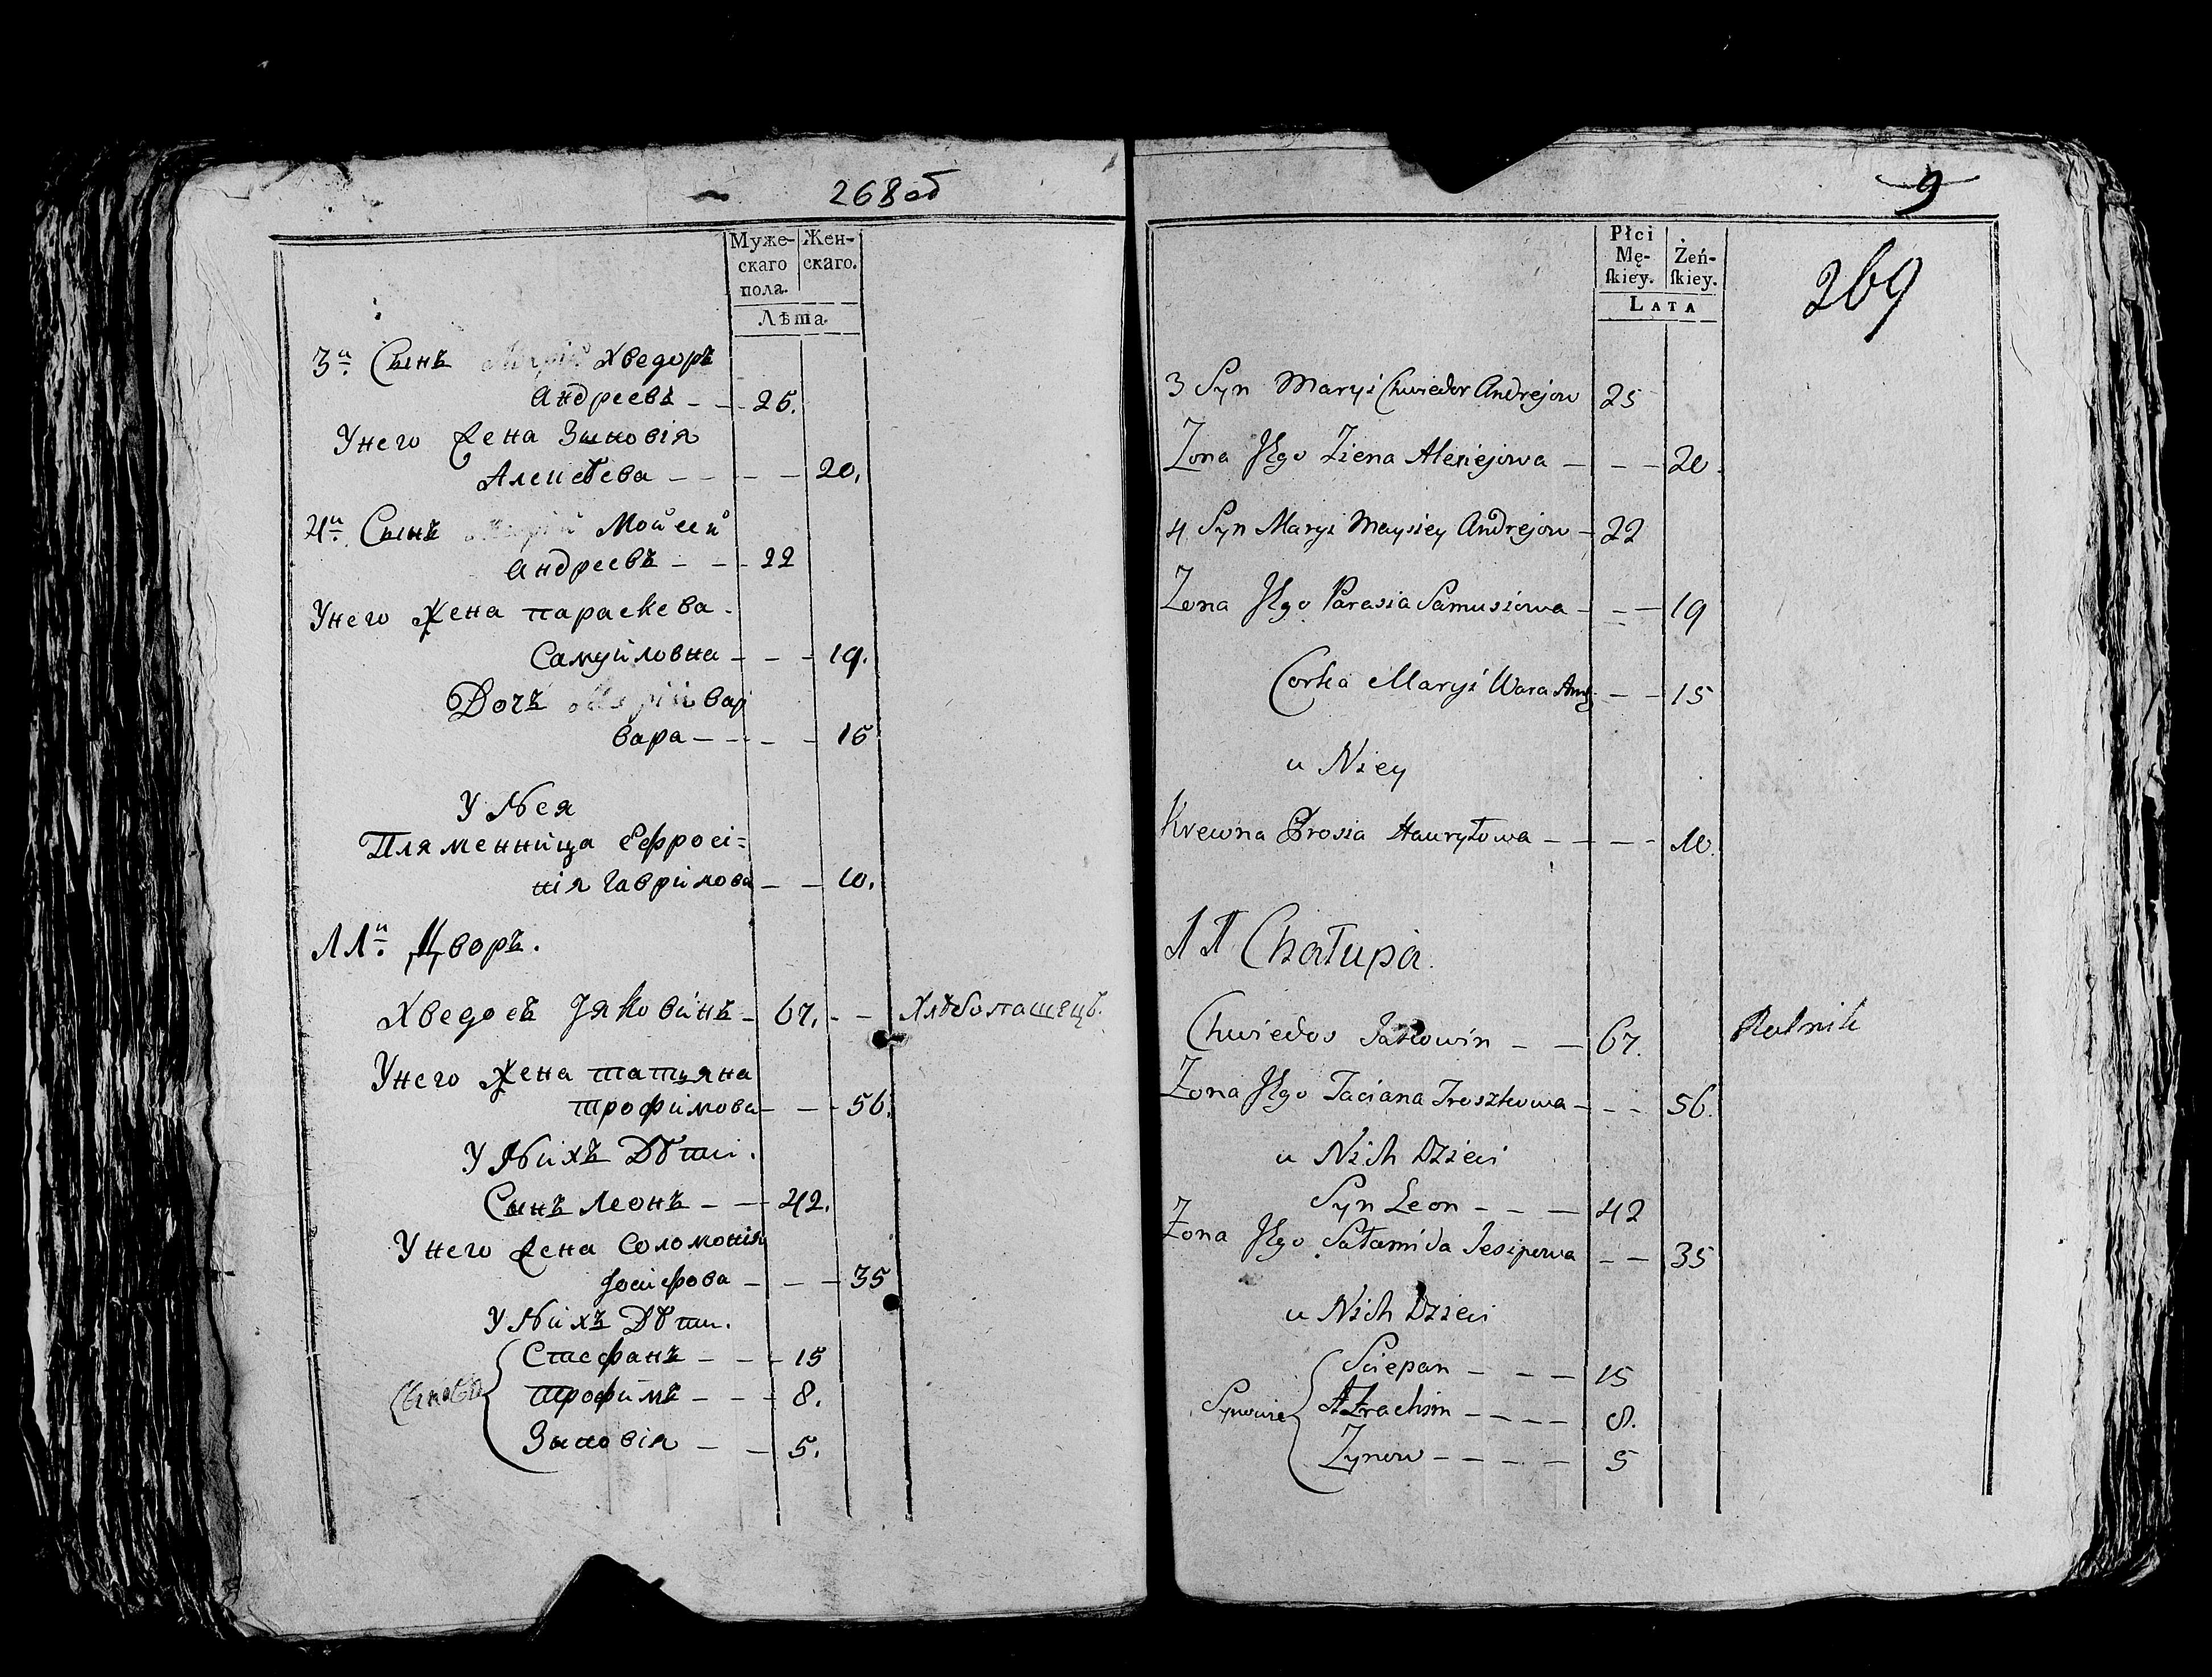 268 об
Муже-
скаго
пола.
Жен-
скаго.
Лѣта.
3й Сынъ Марiи Хведоръ
Андреевъ - - 25.
У него жена Зиновія
Алексѣева - - - - 20.
4й Сынъ Марiи Мойсей
Андреевъ - - - 22
У него жена параскева
Самуйловна - - - 19.
Дочъ Марiи вар
вара - - - - 15
У Нея
Пляменница Ефросі=
нія Гаврилова - - 10.
11й Дворъ.
Хведосъ Яковинъ - 67. - - Хлѣбопашецъ.
У него жена татьяна
трофимова - - - 56.
У Нихъ Дѣти.
Сынъ Леонъ - - 42.
У него жена Соломонія
Іосифова - - - 35
У Нихъ Дѣти.
Сыновья
Стефанъ - - - 15
трофимъ - - - 8.
Зиновія - - 5.
9
269
Płci
Mę-
ſkiey.
Żeń-
ſkiey.
LATA
3 Syn Maryi Chwiedor Andrejow 25
Zona Jego Ziena Alexiejowa - - - 20.
4 Syn Maryi Maysiey Andrejow - 22
Zona Jego Parasia Samusiowa - - - 19
Corka Maryi Wara And - - 15
u Niey
Krewna Prosia Hauryłowa - - - - 10.
11 Chałupa.
Chwiedos Jakowin - - 67. Rolnik
Zona Jego Taciana Troszkowa - - - 56.
u Nich Dzieci
Syn Leon - - - 42
Zona Jego Sałamida Jesipowa - - 35
u Nich Dzieci
Synowie
Sciepan - - - 15
Trachim - - - - 8.
Zynow - - - - 5